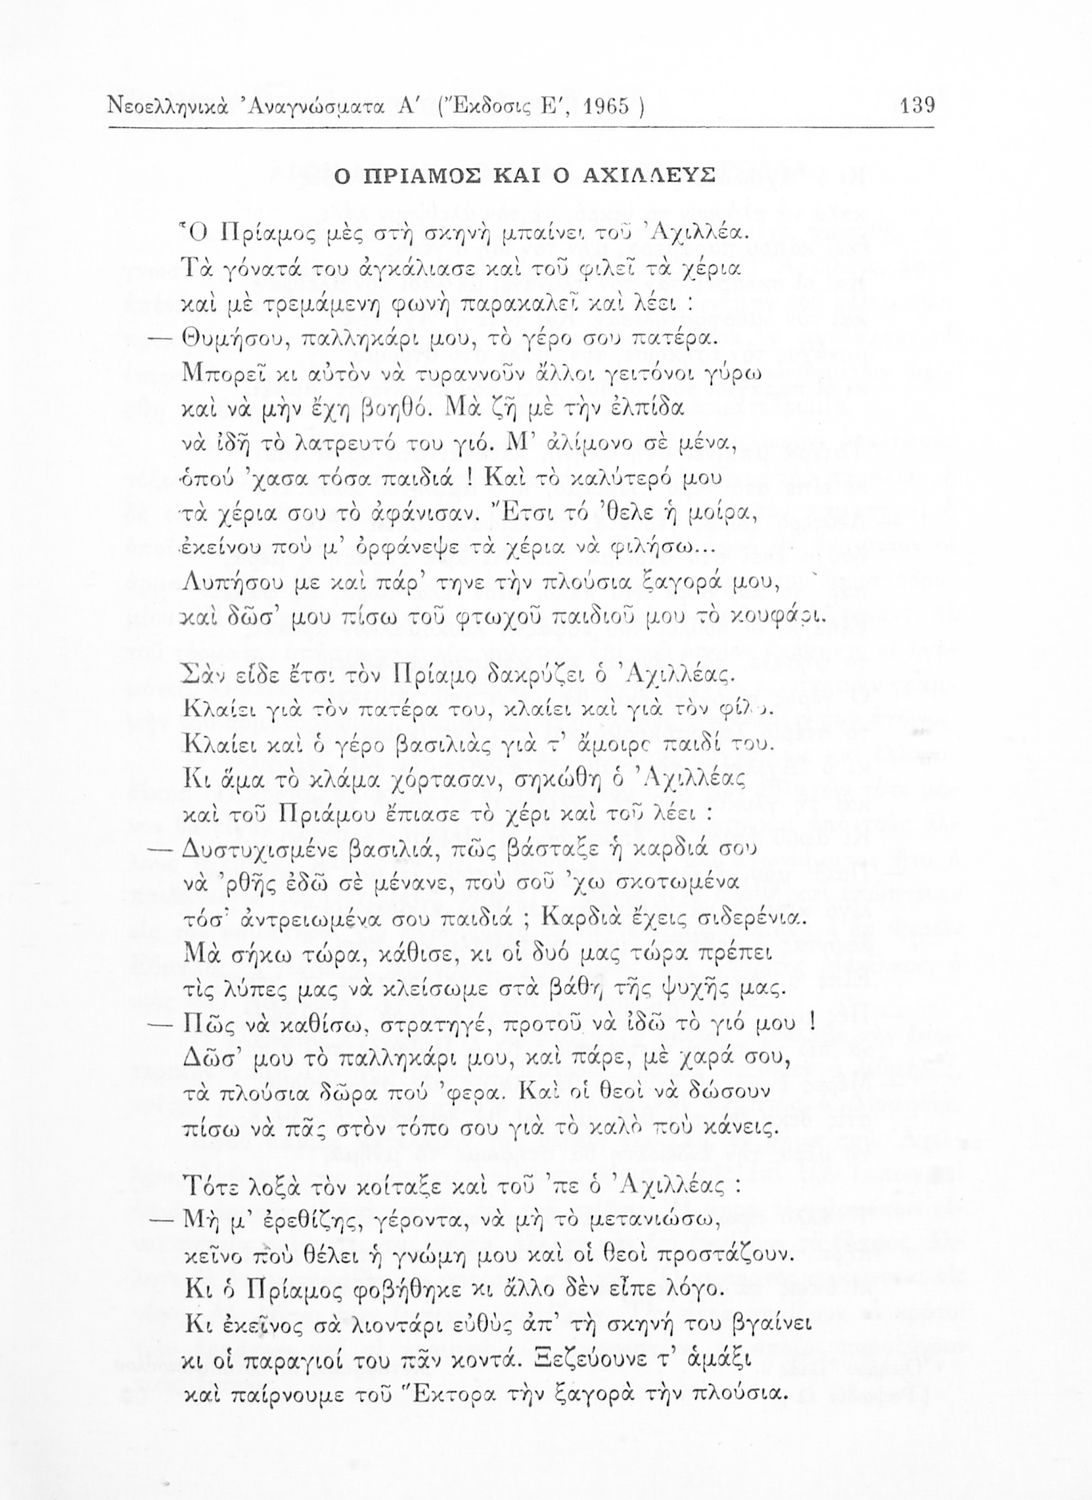 Νεοελληνικὰ Ἀναγνώσματα Α΄ (Ἔκδοσις Ε΄, 1965 ) 139
Ο ΠΡΙΑΜΟΣ ΚΑΙ Ο ΑΧΙΛΛΕΥΣ
Ὁ Πρίαμος μὲς στὴ σκηνὴ μπαίνει τοῦ Ἀχιλλέα.
Τὰ γόνατά του ἀγκάλιασε καὶ τοῦ φιλεῖ τὰ χέρια
καὶ μὲ τρεμάμενη φωνὴ παρακαλεῖ καὶ λέει :
— Θυμήσου, παλληκάρι μου, τὸ γέρο σου πατέρα.
Μπορεῖ κι αὐτὸν νὰ τυραννοῦν ἄλλοι γειτόνοι γύρω
καὶ νὰ μὴν ἔχη βοηθό. Μὰ ζῆ μὲ τὴν ἐλπίδα
νὰ ἰδῆ τὸ λατρευτό του γιό. Μ’ ἀλίμονο σὲ μένα,
ὁπού ’χασα τόσα παιδιά ! Καὶ τὸ καλύτερό μου
τὰ χέρια σου τὸ ἀφάνισαν. Ἔτσι τό ’θελε ἡ μοίρα,
ἐκείνου ποὺ μ’ ὀρφάνεψε τὰ χέρια νὰ φιλήσω...
Λυπήσου με καὶ πάρ’ τηνε τὴν πλούσια ξαγορά μου,
καὶ δῶσ’ μου πίσω τοῦ φτωχοῦ παιδιοῦ μου τὸ κουφάρι.
Σὰν εἶδε ἔτσι τὸν Πρίαμο δακρύζει ὁ Ἀχιλλέας.
Κλαίει γιὰ τὸν πατέρα του, κλαίει καὶ γιὰ τὸν φίλο.
Κλαίει καὶ ὁ γέρο βασιλιὰς γιὰ τ’ ἄμοιρο παιδί του.
Κι ἅμα τὸ κλάμα χόρτασαν, σηκώθη ὁ Ἀχιλλέας
καὶ τοῦ Πριάμου ἔπιασε τὸ χέρι καὶ τοῦ λέει :
— Δυστυχισμένε βασιλιά, πῶς βάσταξε ἡ καρδιά σου
νὰ ’ρθῆς ἐδῶ σὲ μένανε, ποὺ σοῦ ’χω σκοτωμένα
τόσ’ ἀντρειωμένα σου παιδιά ; Καρδιὰ ἔχεις σιδερένια.
Μὰ σήκω τώρα, κάθισε, κι οἱ δυό μας τώρα πρέπει
τὶς λύπες μας νὰ κλείσωμε στὰ βάθη τῆς ψυχῆς μας.
— Πῶς νὰ καθίσω, στρατηγέ, προτοῦ νὰ ἰδῶ τὸ γιό μου !
Δῶσ’ μου τὸ παλληκάρι μου, καὶ πάρε, μὲ χαρά σου,
τὰ πλούσια δῶρα πού ’φερα. Καὶ οἱ θεοὶ νὰ δώσουν
πίσω νὰ πᾶς στὸν τόπο σου γιὰ τὸ καλὸ ποὺ κάνεις.
Τότε λοξὰ τὸν κοίταξε καὶ τοῦ ’πε ὁ Ἀχιλλέας :
— Μὴ μ’ ἐρεθίζης, γέροντα, νὰ μὴ τὸ μετανιώσω,
κεῖνο ποὺ θέλει ἡ γνώμη μου καὶ οἱ θεοὶ προστάζουν.
Κι ὁ Πρίαμος φοβήθηκε κι ἄλλο δὲν εἶπε λόγο.
Κι ἐκεῖνος σὰ λιοντάρι εὐθὺς ἀπ’ τὴ σκηνή του βγαίνει
κι οἱ παραγιοί του πᾶν κοντά. Ξεζεύουνε τ’ ἁμάξι
καὶ παίρνουμε τοῦ Ἕκτορα τὴν ξαγορὰ τὴν πλούσια.